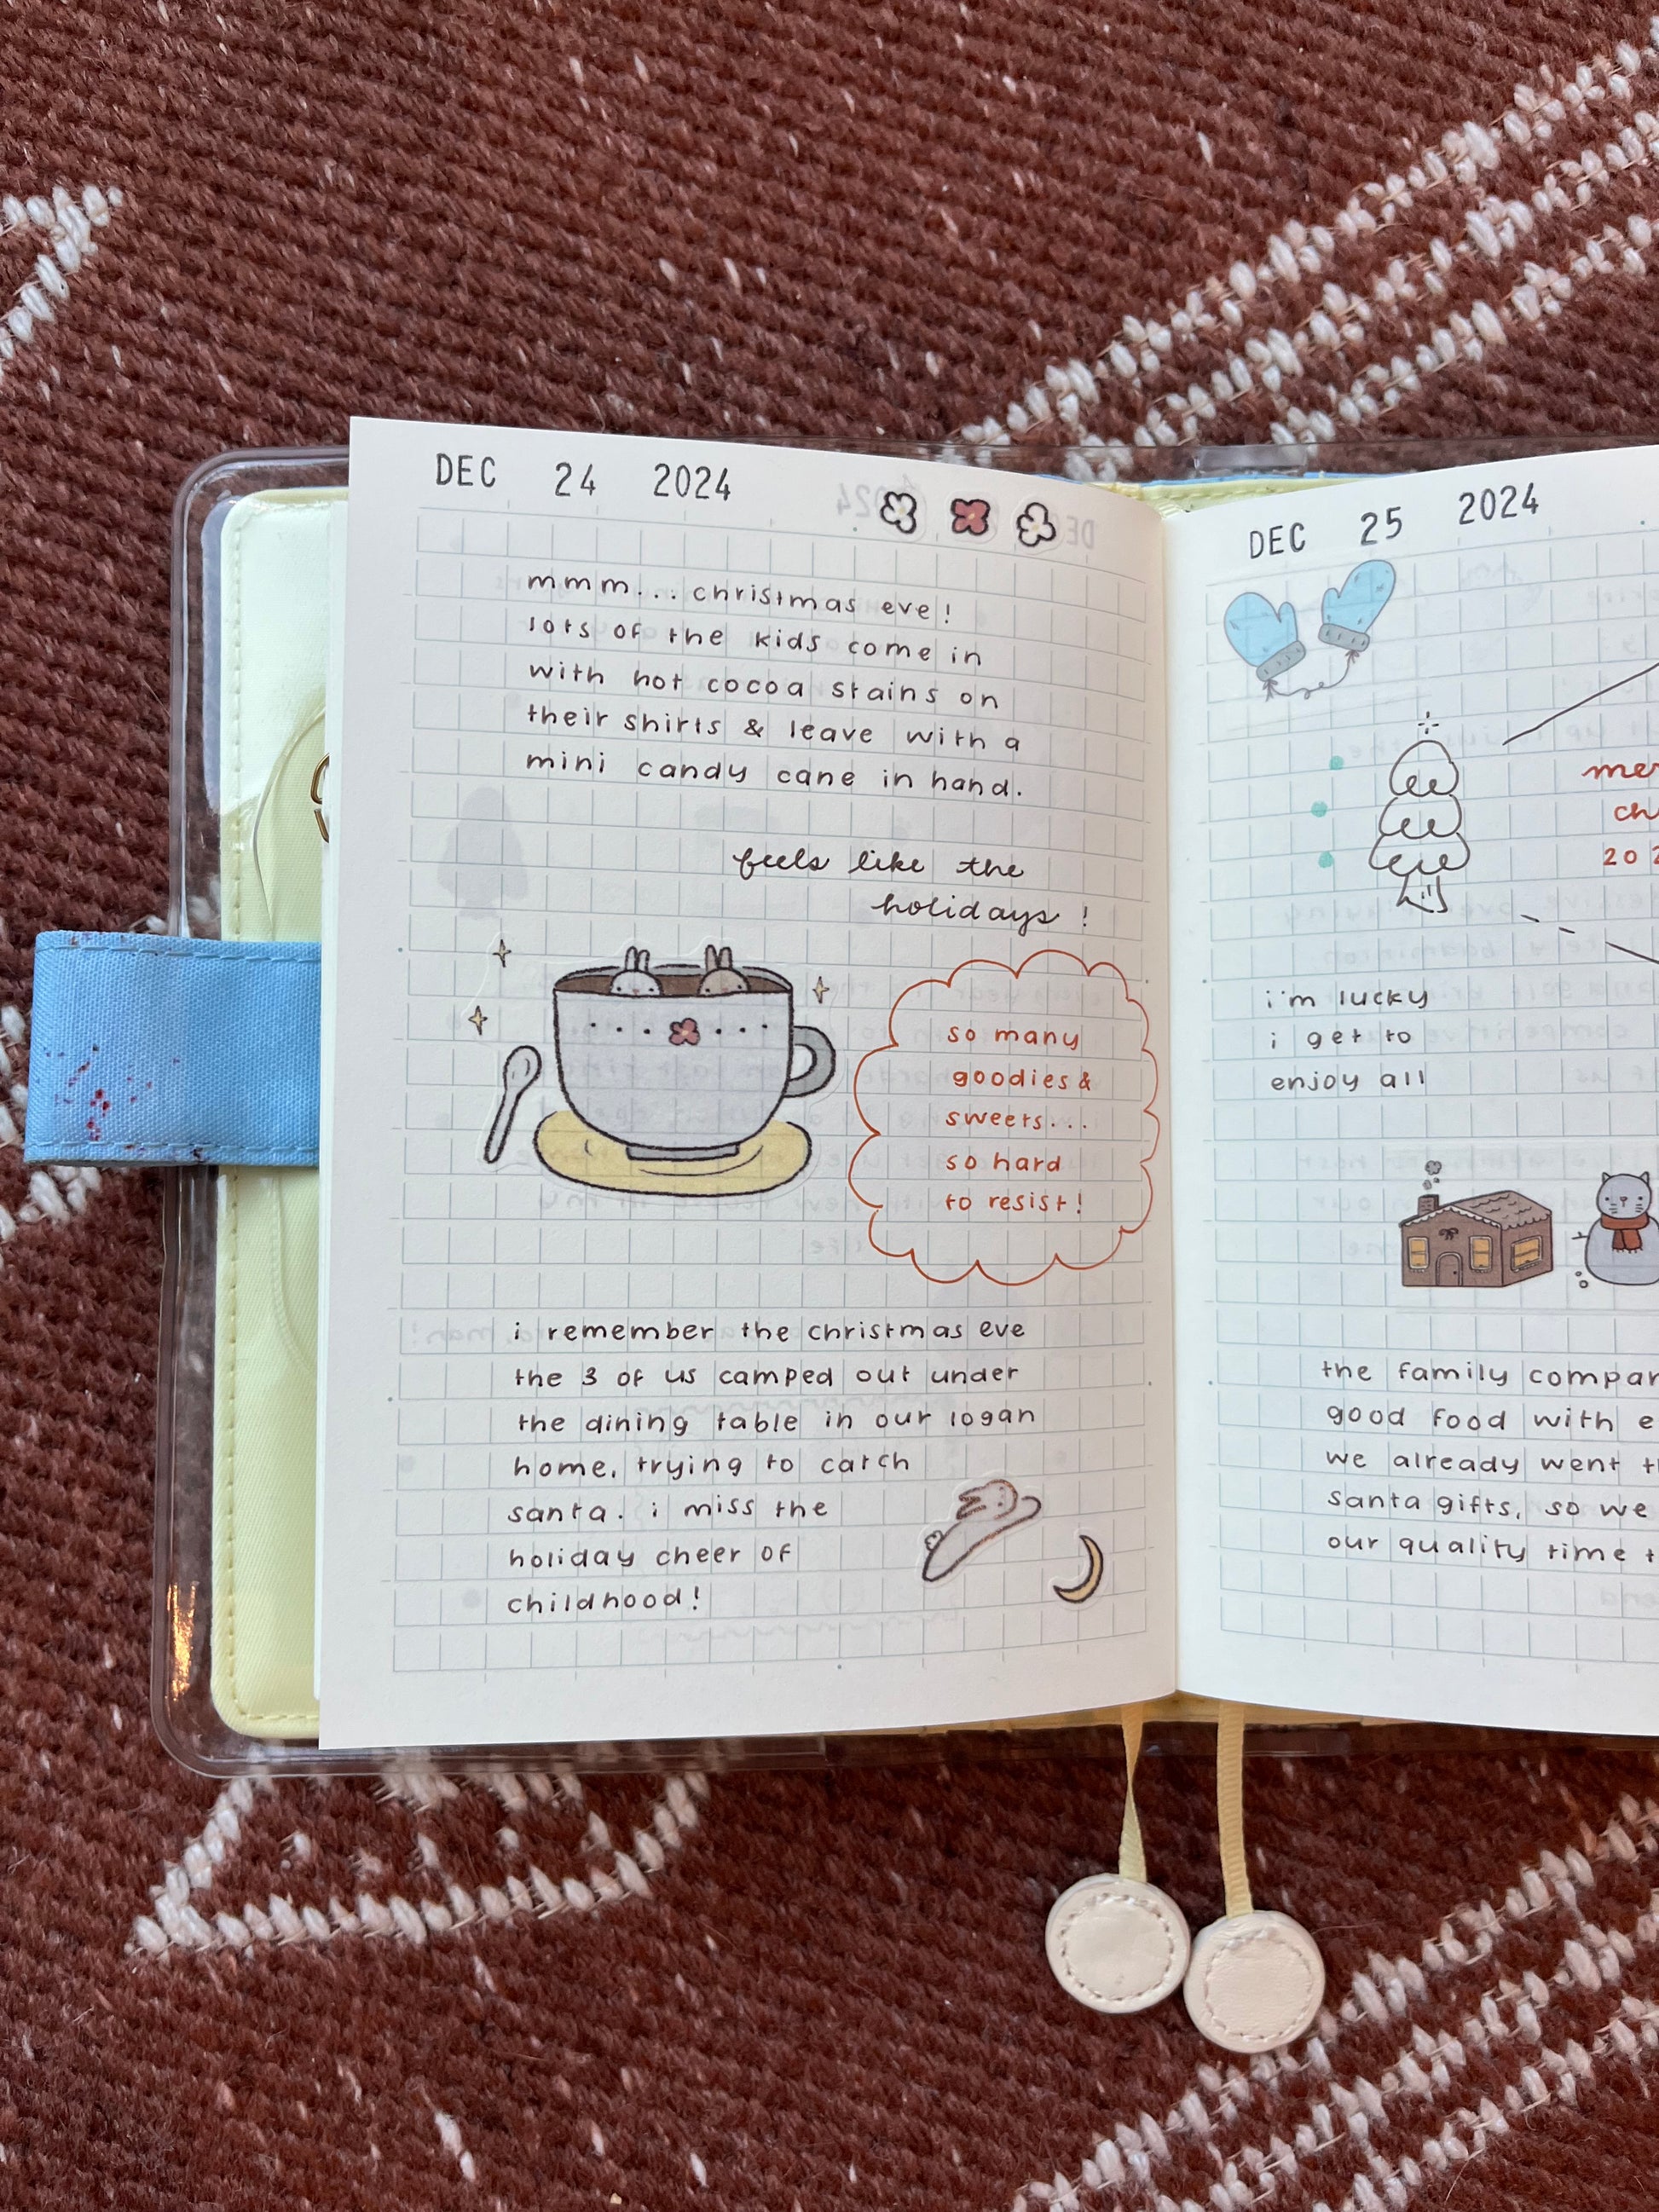 DEC 24 2024
mmm... christmas eve!
lots of the kids come in
with hot cocoa stains on
their shirts & leave with a
mini candy cane in hand.
feels like the
holidays!
so many
goodies &
sweets...
so hard
to resist!
i remember the christmas eve
the 3 of us camped out under
the dining table in our logan
home, trying to catch
santa. i miss the
holiday cheer of
childhood!
DEC 25 2024
i'm lucky
i get to
enjoy all
the family
good food with
we already went
santa gifts, so we
our quality time